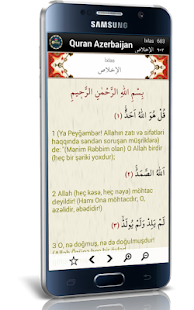 SAMSUNG
Quran Azerbaijan
İxlas 603
٦٠٣ الإخلاص
İxlas
الإخلاص
بِسْمِ اللَّهِ الرَّحْمَٰنِ الرَّحِيمِ
قُلْ هُوَ اللَّهُ أَحَدٌ (١)
1 (Ya Peyğəmbər! Allahın zatı və sifətləri
haqqında səndən soruşan müşriklərə)
de: "(Mənim Rəbbim olan) O Allah birdir
(heç bir şəriki yoxdur);
اللَّهُ الصَّمَدُ (٢)
2 Allah (heç kəsə, heç nəyə) möhtac
deyildir! (Hamı Ona möhtacdır; O,
əzəlidir, əbədidir!)
لَمْ يَلِدْ وَلَمْ يُولَدْ (٣)
3 O, nə doğmuş, nə də doğulmuşdur!